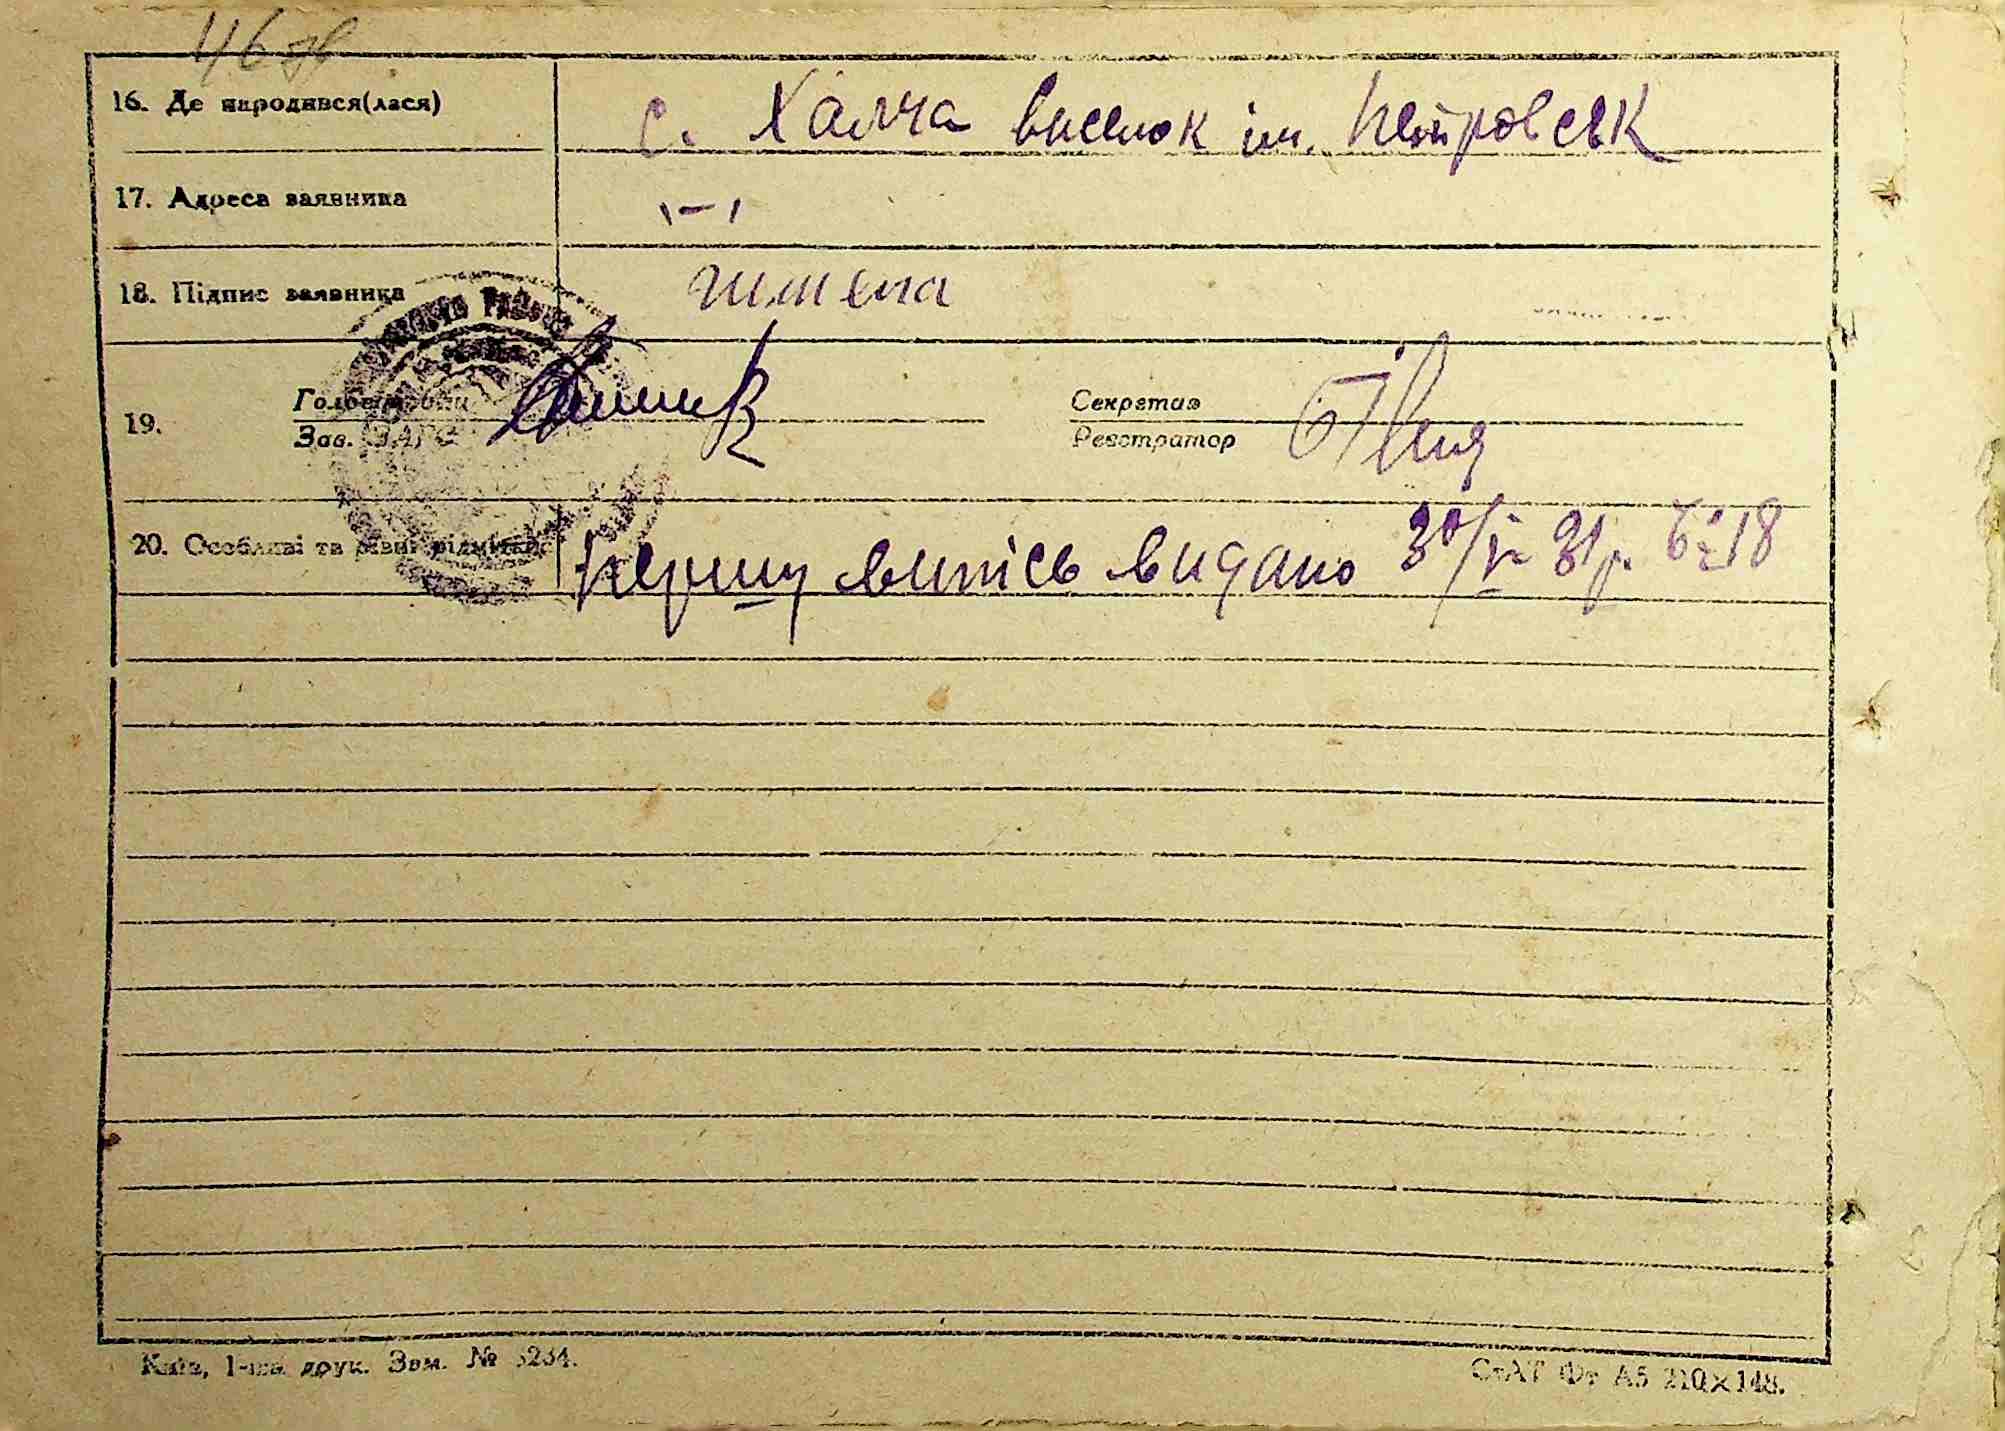 46 зв
16. Де народився(лася) с. Халча виселок ім. Петровськ
17. Адреса заявника "—"
18. Підпис заявника
19. Голова Секретар
Зав. ЗАГС Реєстратор
20. Особливі та різні відмітки Першу випись видано 30/V-31 р. № 18
Київ, 1-ша друк. Зам. № 5234.
СтАТ Фт А5 210×148.